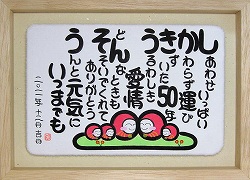 しあわせいっぱい
かわらず運び
きずいた50年
うるわしき
愛情
どんなときも
そそいでくれて
ありがとう
うんと元気に
いつまでも
二〇一一年 十二月吉日